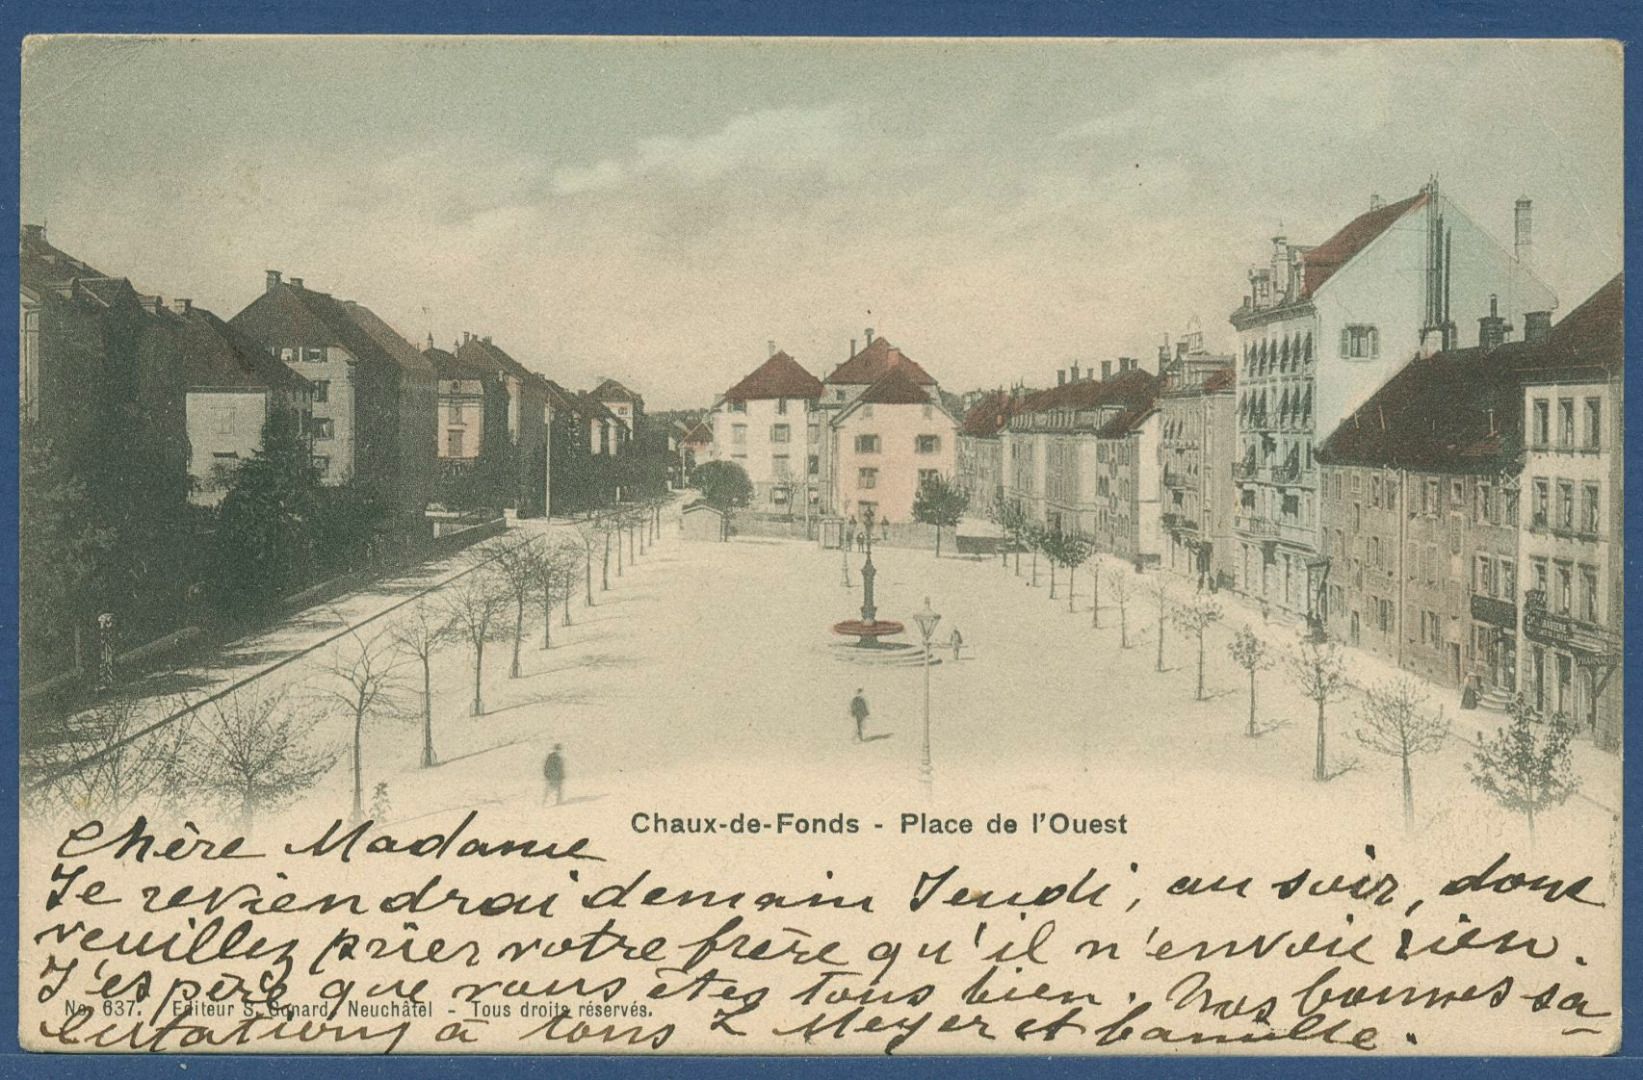 PHARMACIE
Chaux-de-Fonds - Place de l'Ouest
Chère Madame
Je reviendrai demain Jeudi, au soir, donc
veuillez prier votre frère qu'il n'envoie rien.
J'espère que vous êtes tous bien. Nos bonnes sa-
No. 637. Editeur S. Gonard, Neuchâtel - Tous droits réservés.
lutations à tous L Meyer et famille.